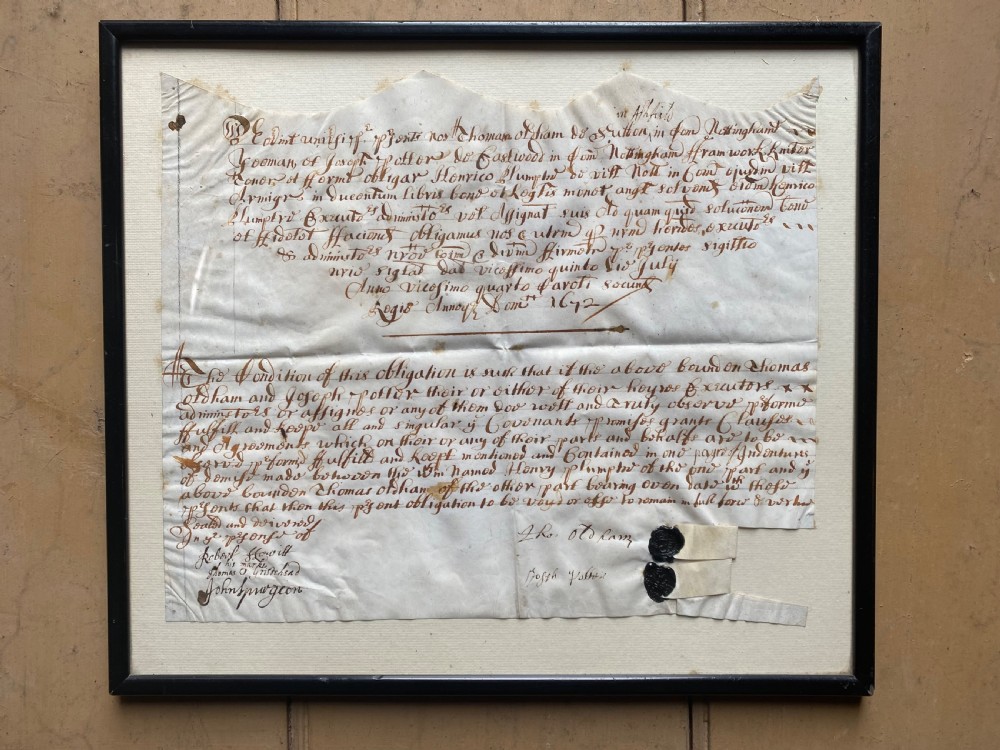 in Ashfield
Noverint universi p psentes nos Thomam Oldham de Sutton in Com Nottinghamt
Yeoman et Joseph Potter de Eastwood in Com Nottingham fframwork knitter
teneri et firmit obligar Henrico Plumptre de vill Nott in Com ejusdem vill
Armigro in ducentum libris bone et legalis monet Angl solvend eidem Henrico
Plumptre Executo administo vel Assignat suis Ad quam quid solucionem bene
et fidelit faciend obligamus nos et utrm nrm heredes executo
& administores nros totm & divim firmitr p psentes sigillis
nris sigillat dat vicessimo quinto die July
Anno vicesimo quarto Caroli secundi
Regis Annoq Dom 1672
The Condition of this obligation is such that if the above bounden Thomas
Oldham and Joseph Potter their or either of their heyres Executors &
administors or assignes or any of them doe well and Truly observe pforme
ffulfill and keepe all and singular y Covenants pmises grants Clauses
and Agreements which on their or any of their parts and behalfs are to be
pformed ffulfilld and kept mentioned and Contained in one paire Indentures
of demise made between the named Henry plumptre of the one part and y
above bounden Thomas oldham of the other part bearing even date with these
psents that then this psent obligation to be voyd or else to remain in full force & vertue
Sealed and delivered
In ye psense of
Robert Hewitt
his marke
Thomas
John Spurgeon
Tho. Oldham
Joseph Potter